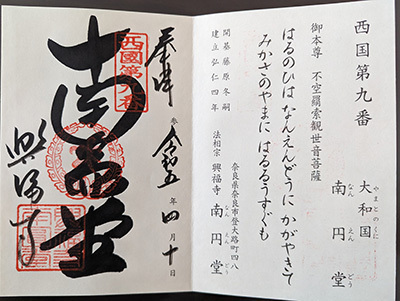 西国第九番
大和国
やまとのくに
南円堂
なんえんどう
御本尊 不空羂索観世音菩薩
はるのひは なんえんどうに かがやきて
みかさのやまに はるるうすぐも
開基 藤原冬嗣
建立 弘仁四年
法相宗 興福寺 南円堂
なんえんどう
奈良県奈良市登大路町四八
奉拝
西國第九番
令和五年四月十日
南円堂
興福寺